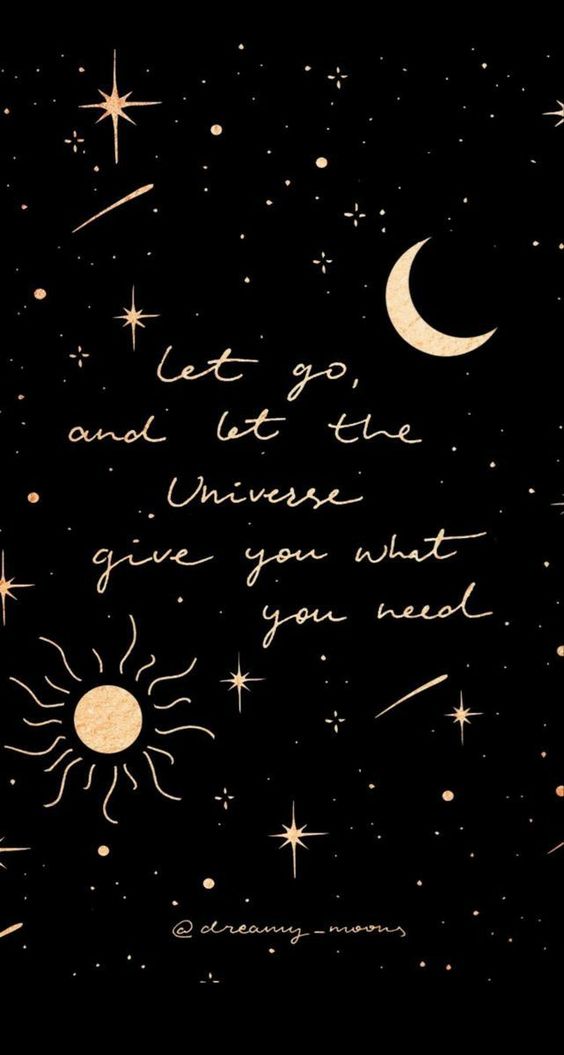 let go,
and let the
Universe
give you what
you need.
@dreamy_moons